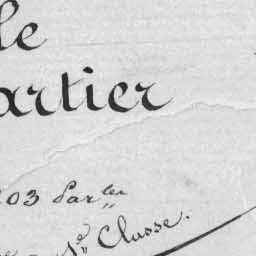 le
artier
203 Par^ter
1^e Classe.